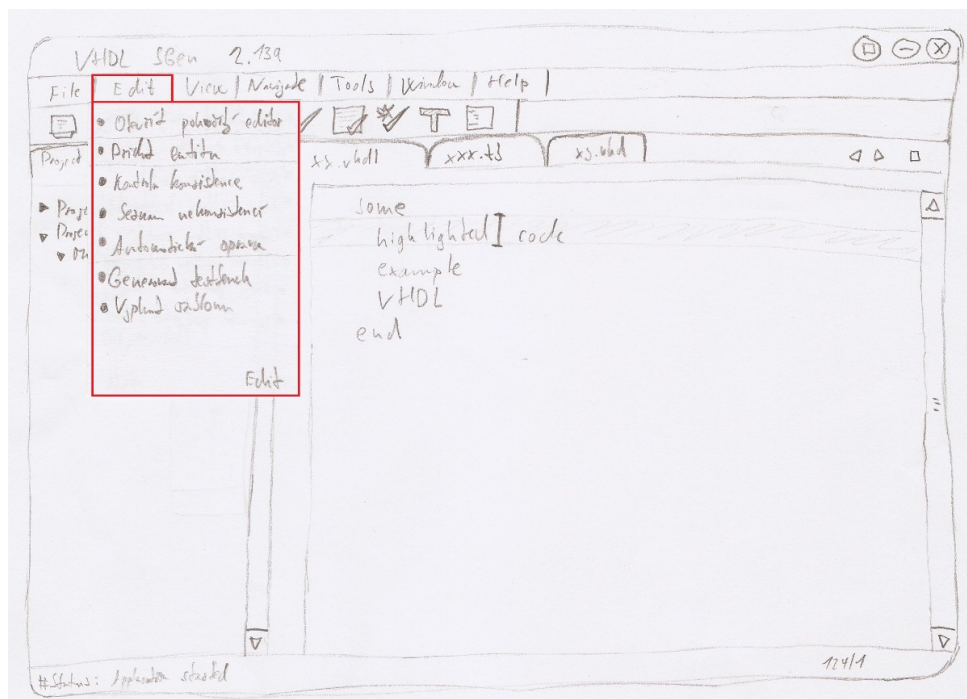 VHDL SGen 2.13a
File | Edit | View | Navigate | Tools | Window | Help |
Project
xs.vhdl
xxx.ts
xs.vhd
Otevřít pokročilý editor
Přidat entitu
Kontrola konzistence
Seznam nekonzistencí
Automatická oprava
Generovat testbench
Vyplnit šablonu
Edit
some
highlighted code
example
VHDL
end
#Status: Application started
124/1